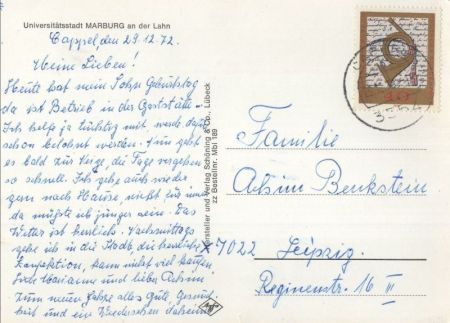 Universitätsstadt MARBURG an der Lahn
Cappel, den 29.12.72.
Meine Lieben!
Heute hat mein Sohn Geburtstag
da ist Betrieb in der Gaststätte.
Ich helfe ja tüchtig mit, werde dafür
schon belohnt werden. Nun geht
es bald zur Neige, die Tage vergehen
so schnell. Ich gehe auch wieder
gern nach Hause, nicht für immer
da müßte ich jünger sein. Das
Wetter ist herrlich. Nachmittags
gehe ich in die Stadt, die herrliche
Konfektion, kann nicht viel kaufen
Liebe Marianne und lieber Achim
Zum neuen Jahre alles Gute, Gesund-
heit und ein Wiedersehen
Hersteller und Verlag Schöning & Co., Lübeck
zz Bestellnr. Mbl 189
Familie
Achim Benkstein
7022 Leipzig
Reginenstr. 16 II
Agfa